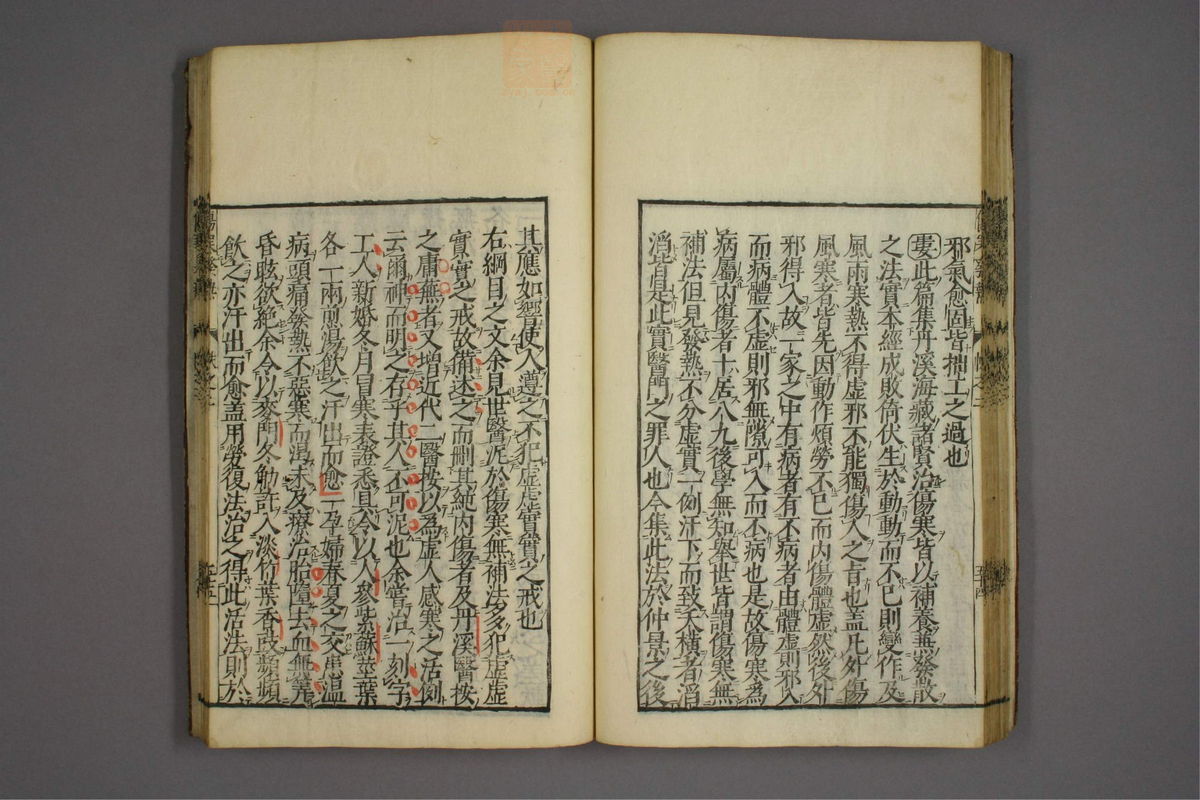 邪氣愈固皆拙工之過也
婁此篇集丹溪海藏諸賢治傷寒皆以補養兼發散
之法實本經成敗倚伏生於動動而不已則變作及
風雨寒熱不得虛邪不能獨傷人之旨也蓋凡外傷
風寒者皆先因動作煩勞不已而內傷體虛然後外
邪得入故一家之中有病者有不病者由體虛則邪入
而病體不虛則邪無隙可入而不病也是故傷寒爲
病屬內傷者十居八九後學無知舉世皆謂傷寒無
補法但見發熱不分虛實一例汗下而致夭橫者滔
滔皆是此實醫門之罪人也今集此法於仲景之後
其應如響使人遵之不犯虛虛實實之戒也
右綱目之文余見世醫泥於傷寒無補法多犯虛虛
實實之戒故備述之而刪其純內傷者及丹溪醫按
之庸蕪者又增近代二醫按以為虛人感寒之活例
云爾神而明之存乎其人不可泥也余嘗治一刻字
工人新婚冬月冒寒表證悉具令以人參紫蘇莖葉
各一兩煎湯飲之汗出而愈一孕婦春夏之交患溫
病頭痛發熱不惡寒而渴未及療治胎墮去血無筭
昏眩欲絶余令以麥門冬觔許入淡竹葉香豉頻頻
飲之亦汗出而愈蓋用勞復法治之得此活法則於